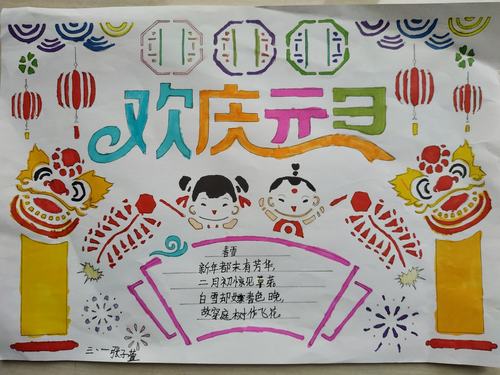 欢庆元旦
春雪
新年都未有芳华,
二月初惊见草芽
白雪却嫌春色晚,
故穿庭树作飞花
三、一 张子萱